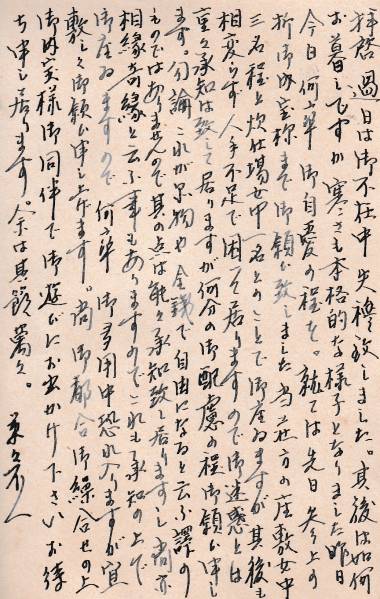 拝啓 過日は御不在中失禮致しました。其後は如何
お暮しですか寒さも本格的な様子となりました昨日
今日何卒御自愛の程を。就ては先日参上の
折御内室様まで御願ひ致しました当方の座敷女中
三名程と炊仕場女中一名とのことで御座ゐますが其後も
相変らず人手不足で困って居りますので御迷惑とは
重々承知は致して居りますが何分の御配慮の程御願ひ申し
ます。勿論これが品物や金銭で自由になると云ふ譯の
ものではありませんので其の点は能く承知致して居りますし尚亦
相縁奇縁と云ふ事もありますのでこれも承知の上で
御座ゐますので何卒御多用中恐れ入りますが宜
敷く御願ひ申し上げます。尚御都合御繰合せの上
御内室様御同伴で御遊びにお出かけ下さいお待
ち申し居ります。余は其節萬々。